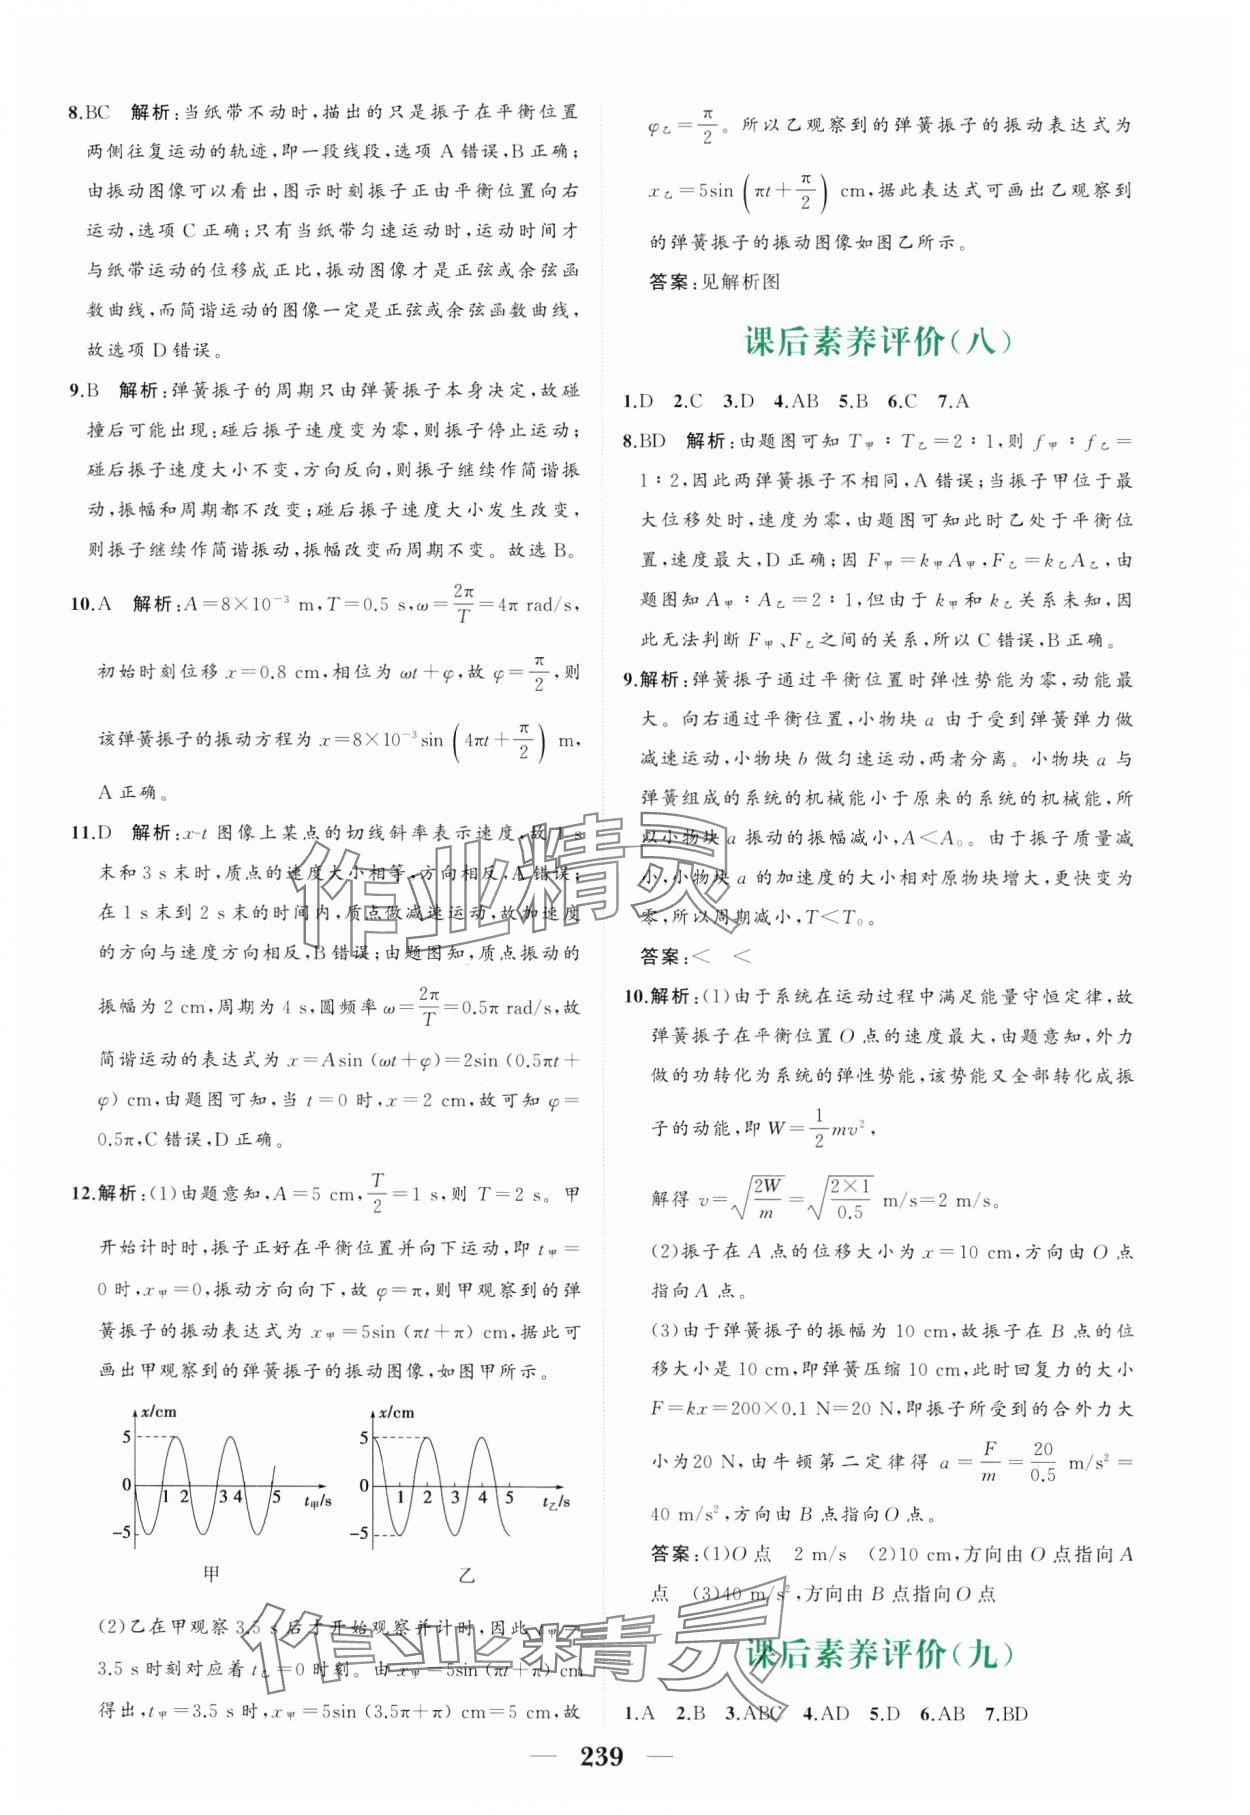 8.BC 解析:当纸带不动时,描出的只是振子在平衡位置
两侧往复运动的轨迹,即一段线段,选项 A 错误,B 正确;
由振动图像可以看出,图示时刻振子正由平衡位置向右
运动,选项 C 正确;只有当纸带匀速运动时,运动时间才
与纸带运动的位移成正比,振动图像才是正弦或余弦函
数曲线,而简谐运动的图像一定是正弦或余弦函数曲线,
故选项 D 错误。
9.B 解析:弹簧振子的周期只由弹簧振子本身决定,故碰
撞后可能出现:碰后振子速度变为零,则振子停止运动;
碰后振子速度大小不变,方向反向,则振子继续作简谐振
动,振幅和周期都不改变;碰后振子速度大小发生改变,
则振子继续作简谐振动,振幅改变而周期不变。故选 B。
10.A 解析:A=8×10⁻³ m,T=0.5 s,ω=2π/T=4π rad/s,
初始时刻位移 x=0.8 cm,相位为 ωt+φ,故 φ=π/2,则
该弹簧振子的振动方程为 x=8×10⁻³sin(4πt+π/2) m,
A 正确。
11.D 解析:x-t 图像上某点的切线斜率表示速度,故 1 s
末和 3 s 末时,质点的速度大小相等,方向相反,A 错误;
在 1 s 末到 2 s 末的时间内,质点做减速运动,故加速度
的方向与速度方向相反,B 错误;由题图知,质点振动的
振幅为 2 cm,周期为 4 s,圆频率 ω=2π/T=0.5π rad/s,故
简谐运动的表达式为 x=Asin (ωt+φ)=2sin (0.5πt+
φ) cm,由题图可知,当 t=0 时,x=2 cm,故可知 φ=
0.5π,C 错误,D 正确。
12.解析:(1)由题意知,A=5 cm,T/2=1 s,则 T=2 s。甲
开始计时时,振子正好在平衡位置并向下运动,即 t甲=
0 时,x甲=0,振动方向向下,故 φ=π,则甲观察到的弹
簧振子的振动表达式为 x甲=5sin (πt+π) cm,据此可
画出甲观察到的弹簧振子的振动图像,如图甲所示。
x/cm
5
0
-5
1 2 3 4 5 t甲/s
甲
x/cm
5
0
-5
1 2 3 4 5 t乙/s
乙
(2)乙在甲观察 3.5 s 后才开始观察并计时,因此 t甲=
3.5 s 时刻对应着 t乙=0 时刻。由 x甲=5sin (πt+π) cm
得出,t甲=3.5 s 时,x甲=5sin (3.5π+π) cm=5 cm,故
φ乙=π/2。所以乙观察到的弹簧振子的振动表达式为
x乙=5sin(πt+π/2) cm,据此表达式可画出乙观察到
的弹簧振子的振动图像如图乙所示。
答案:见解析图
课后素养评价(八)
1.D 2.C 3.D 4.AB 5.B 6.C 7.A
8.BD 解析:由题图可知 T甲∶T乙=2∶1,则 f甲∶f乙=
1∶2,因此两弹簧振子不相同,A 错误;当振子甲位于最
大位移处时,速度为零,由题图可知此时乙处于平衡位
置,速度最大,D 正确;因 F甲=k甲A甲,F乙=k乙A乙,由
题图知 A甲∶A乙=2∶1,但由于 k甲和 k乙关系未知,因
此无法判断 F甲、F乙之间的关系,所以 C 错误,B 正确。
9.解析:弹簧振子通过平衡位置时弹性势能为零,动能最
大。向右通过平衡位置,小物块 a 由于受到弹簧弹力做
减速运动,小物块 b 做匀速运动,两者分离。小物块 a 与
弹簧组成的系统的机械能小于原来的系统的机械能,所
以小物块 a 振动的振幅减小,A<A₀。由于振子质量减
小,小物块 a 的加速度的大小相对原物块增大,更快变为
零,所以周期减小,T<T₀。
答案:< <
10.解析:(1)由于系统在运动过程中满足能量守恒定律,故
弹簧振子在平衡位置 O 点的速度最大,由题意知,外力
做的功转化为系统的弹性势能,该势能又全部转化成振
子的动能,即 W=1/2mv²,
解得 v=√(2W/m)=√(2×1/0.5) m/s=2 m/s。
(2)振子在 A 点的位移大小为 x=10 cm,方向由 O 点
指向 A 点。
(3)由于弹簧振子的振幅为 10 cm,故振子在 B 点的位
移大小是 10 cm,即弹簧压缩 10 cm,此时回复力的大小
F=kx=200×0.1 N=20 N,即振子所受到的合外力大
小为20 N,由牛顿第二定律得 a=F/m=20/0.5 m/s²=
40 m/s²,方向由 B 点指向 O 点。
答案:(1)O 点 2 m/s (2)10 cm,方向由 O 点指向 A
点 (3)40 m/s²,方向由 B 点指向 O 点
课后素养评价(九)
1.A 2.B 3.ABC 4.AD 5.D 6.AB 7.BD
— 239 —
作业精灵
作业精灵